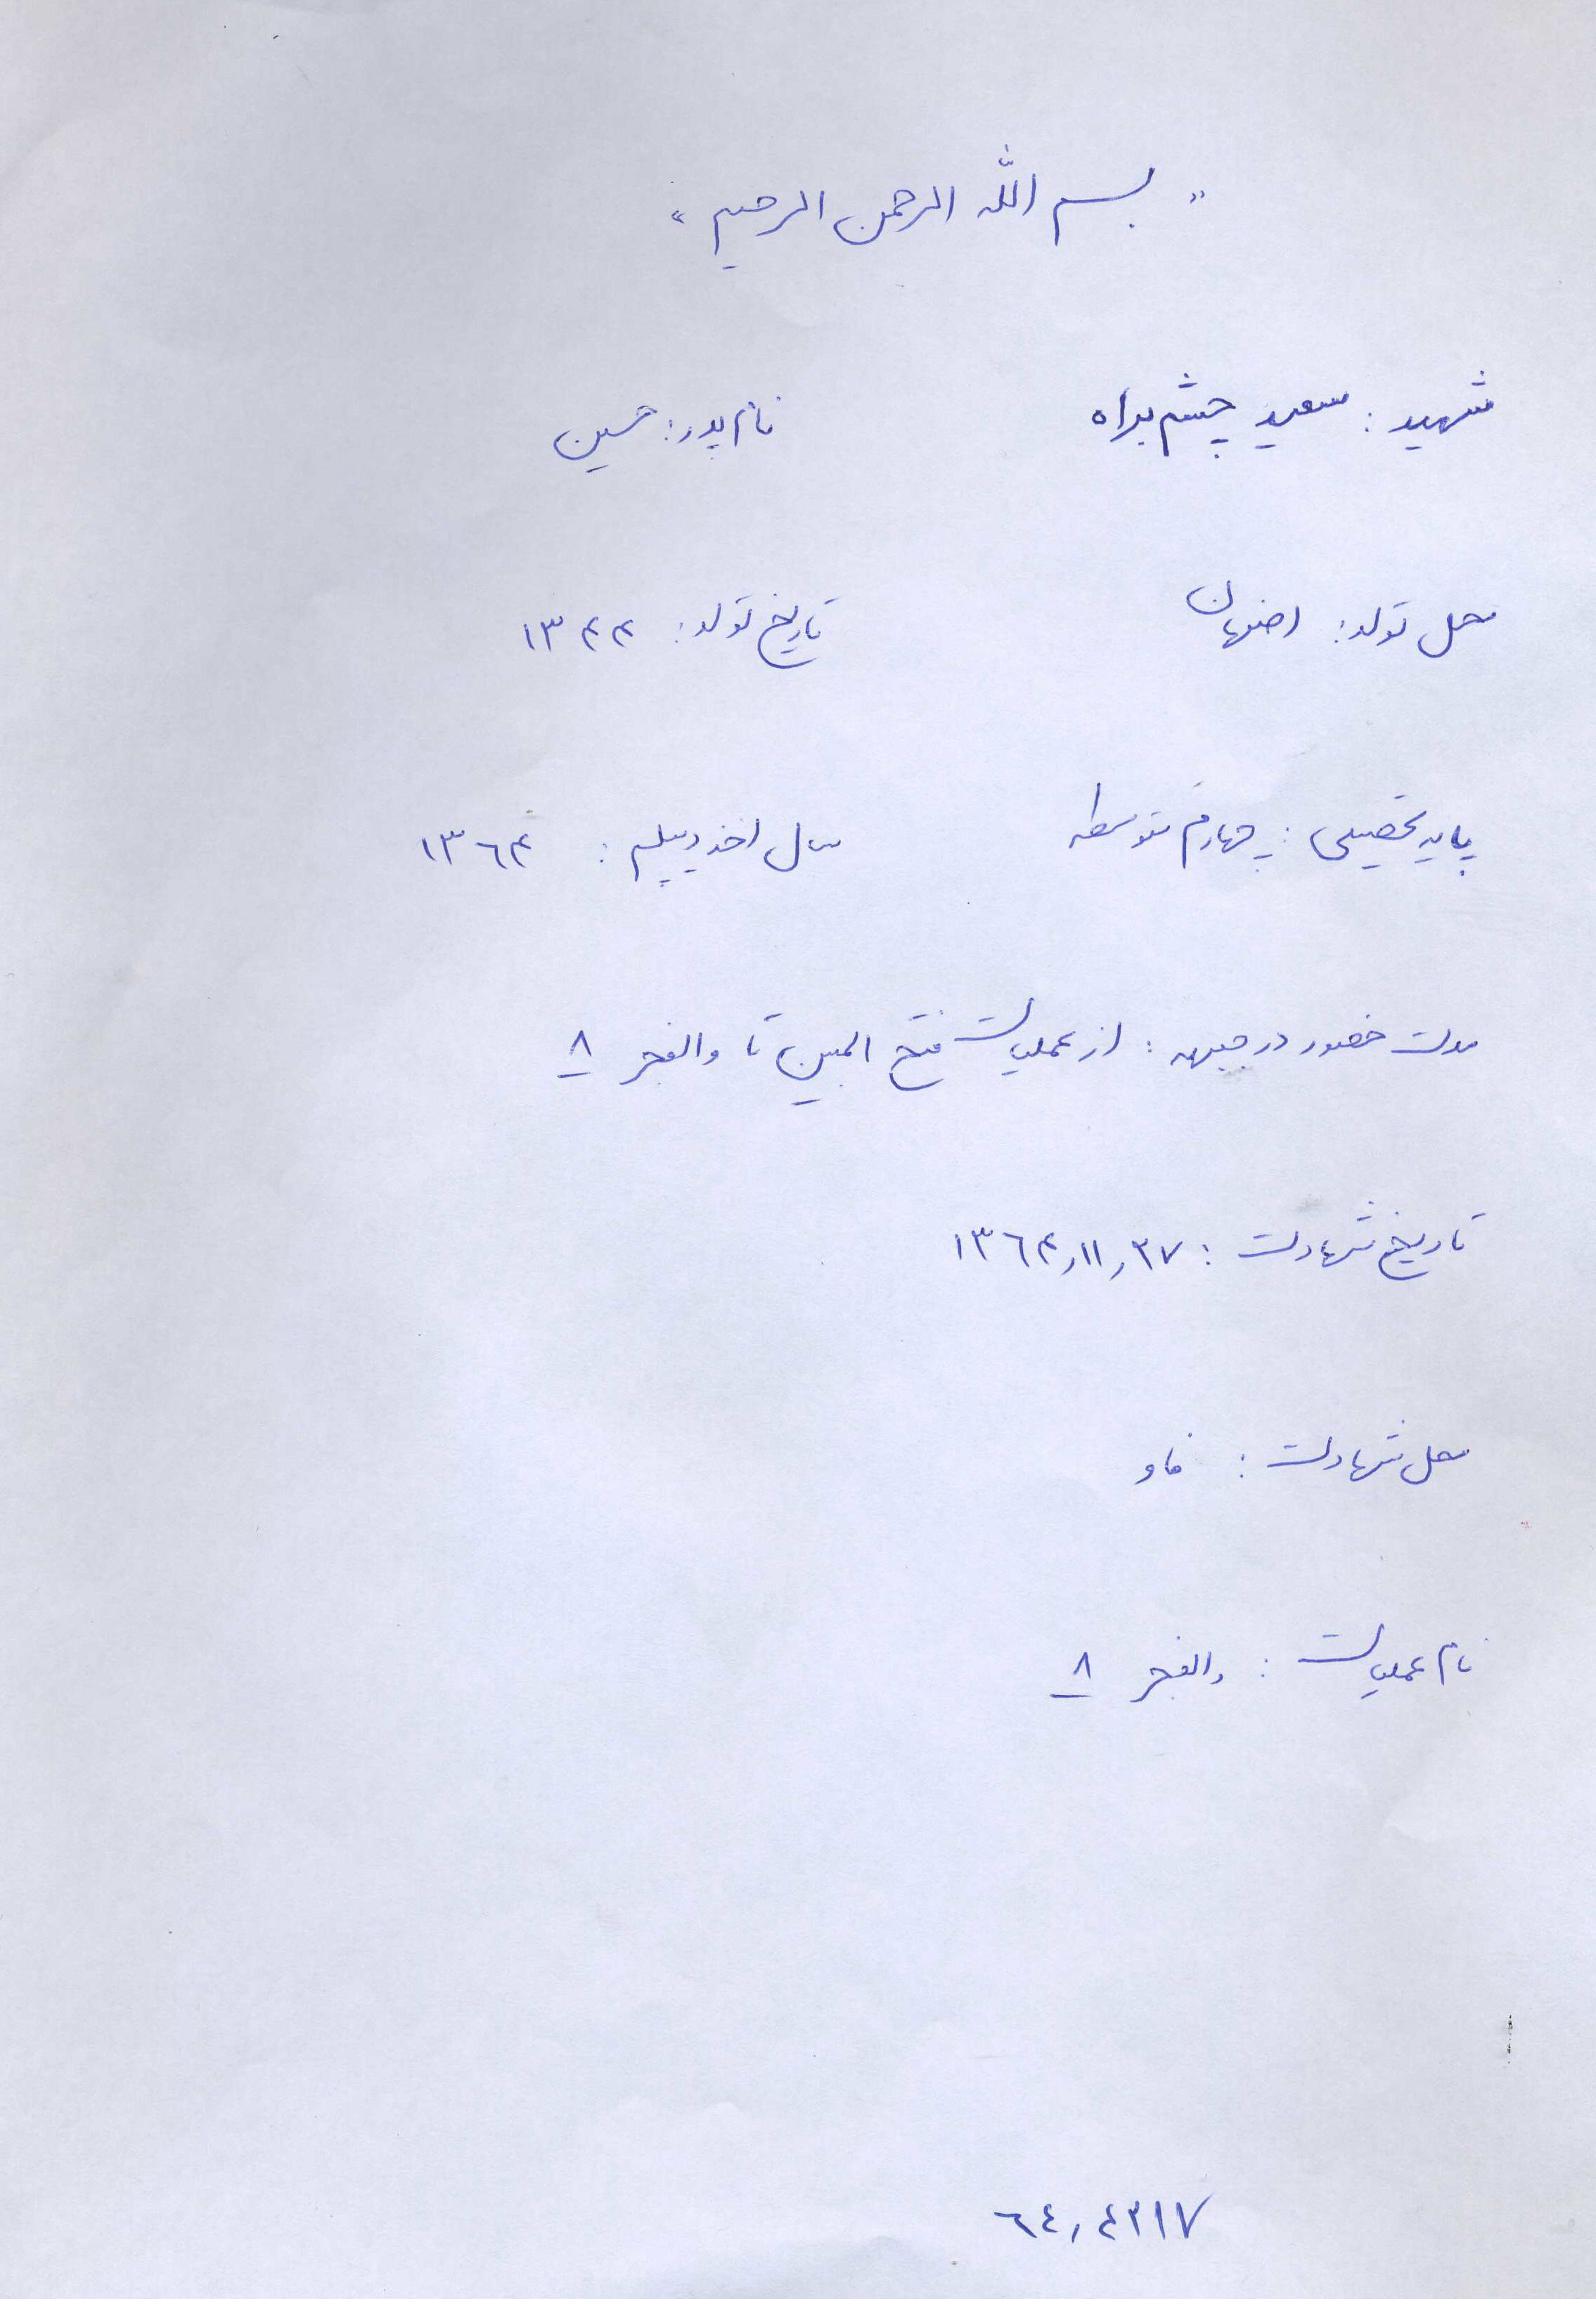 " بسم الله الرحمن الرحیم "
شهید : سعید چشم براه نام پدر: حسین
محل تولد: اصفهان تاریخ تولد: ۱۳۴۴
پایه تحصیلی : چهارم متوسطه سال اخذ دیپلم : ۱۳۶۴
مدت حضور در جبهه : از عملیات فتح المبین تا والفجر ۸
تاریخ شهادت : ۱۳۶۴٫۱۱٫۲۷
محل شهادت : فاو
نام عملیات : والفجر ۸
۶۴٫۴۲۱۷